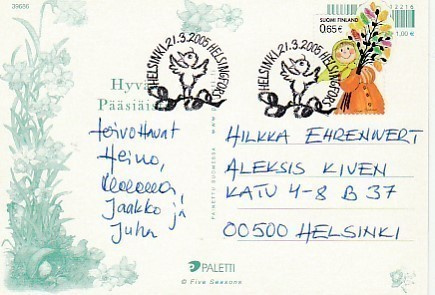 09686
12216
HELSINKI 21.3.2005 HELSINGFORS
HELSINKI 21.3.2005 HELSINGFORS
SUOMI FINLAND
0,65€
1,00 €
Hyvä
Pääsiäis
toivottavat
Heimo,
Jaakko ja
Juha
HILKKA EHRENWERT
ALEKSIS KIVEN
KATU 4-8 B 37
00500 HELSINKI
PAINETTU SUOMESSA
PALETTI
© Five Seasons